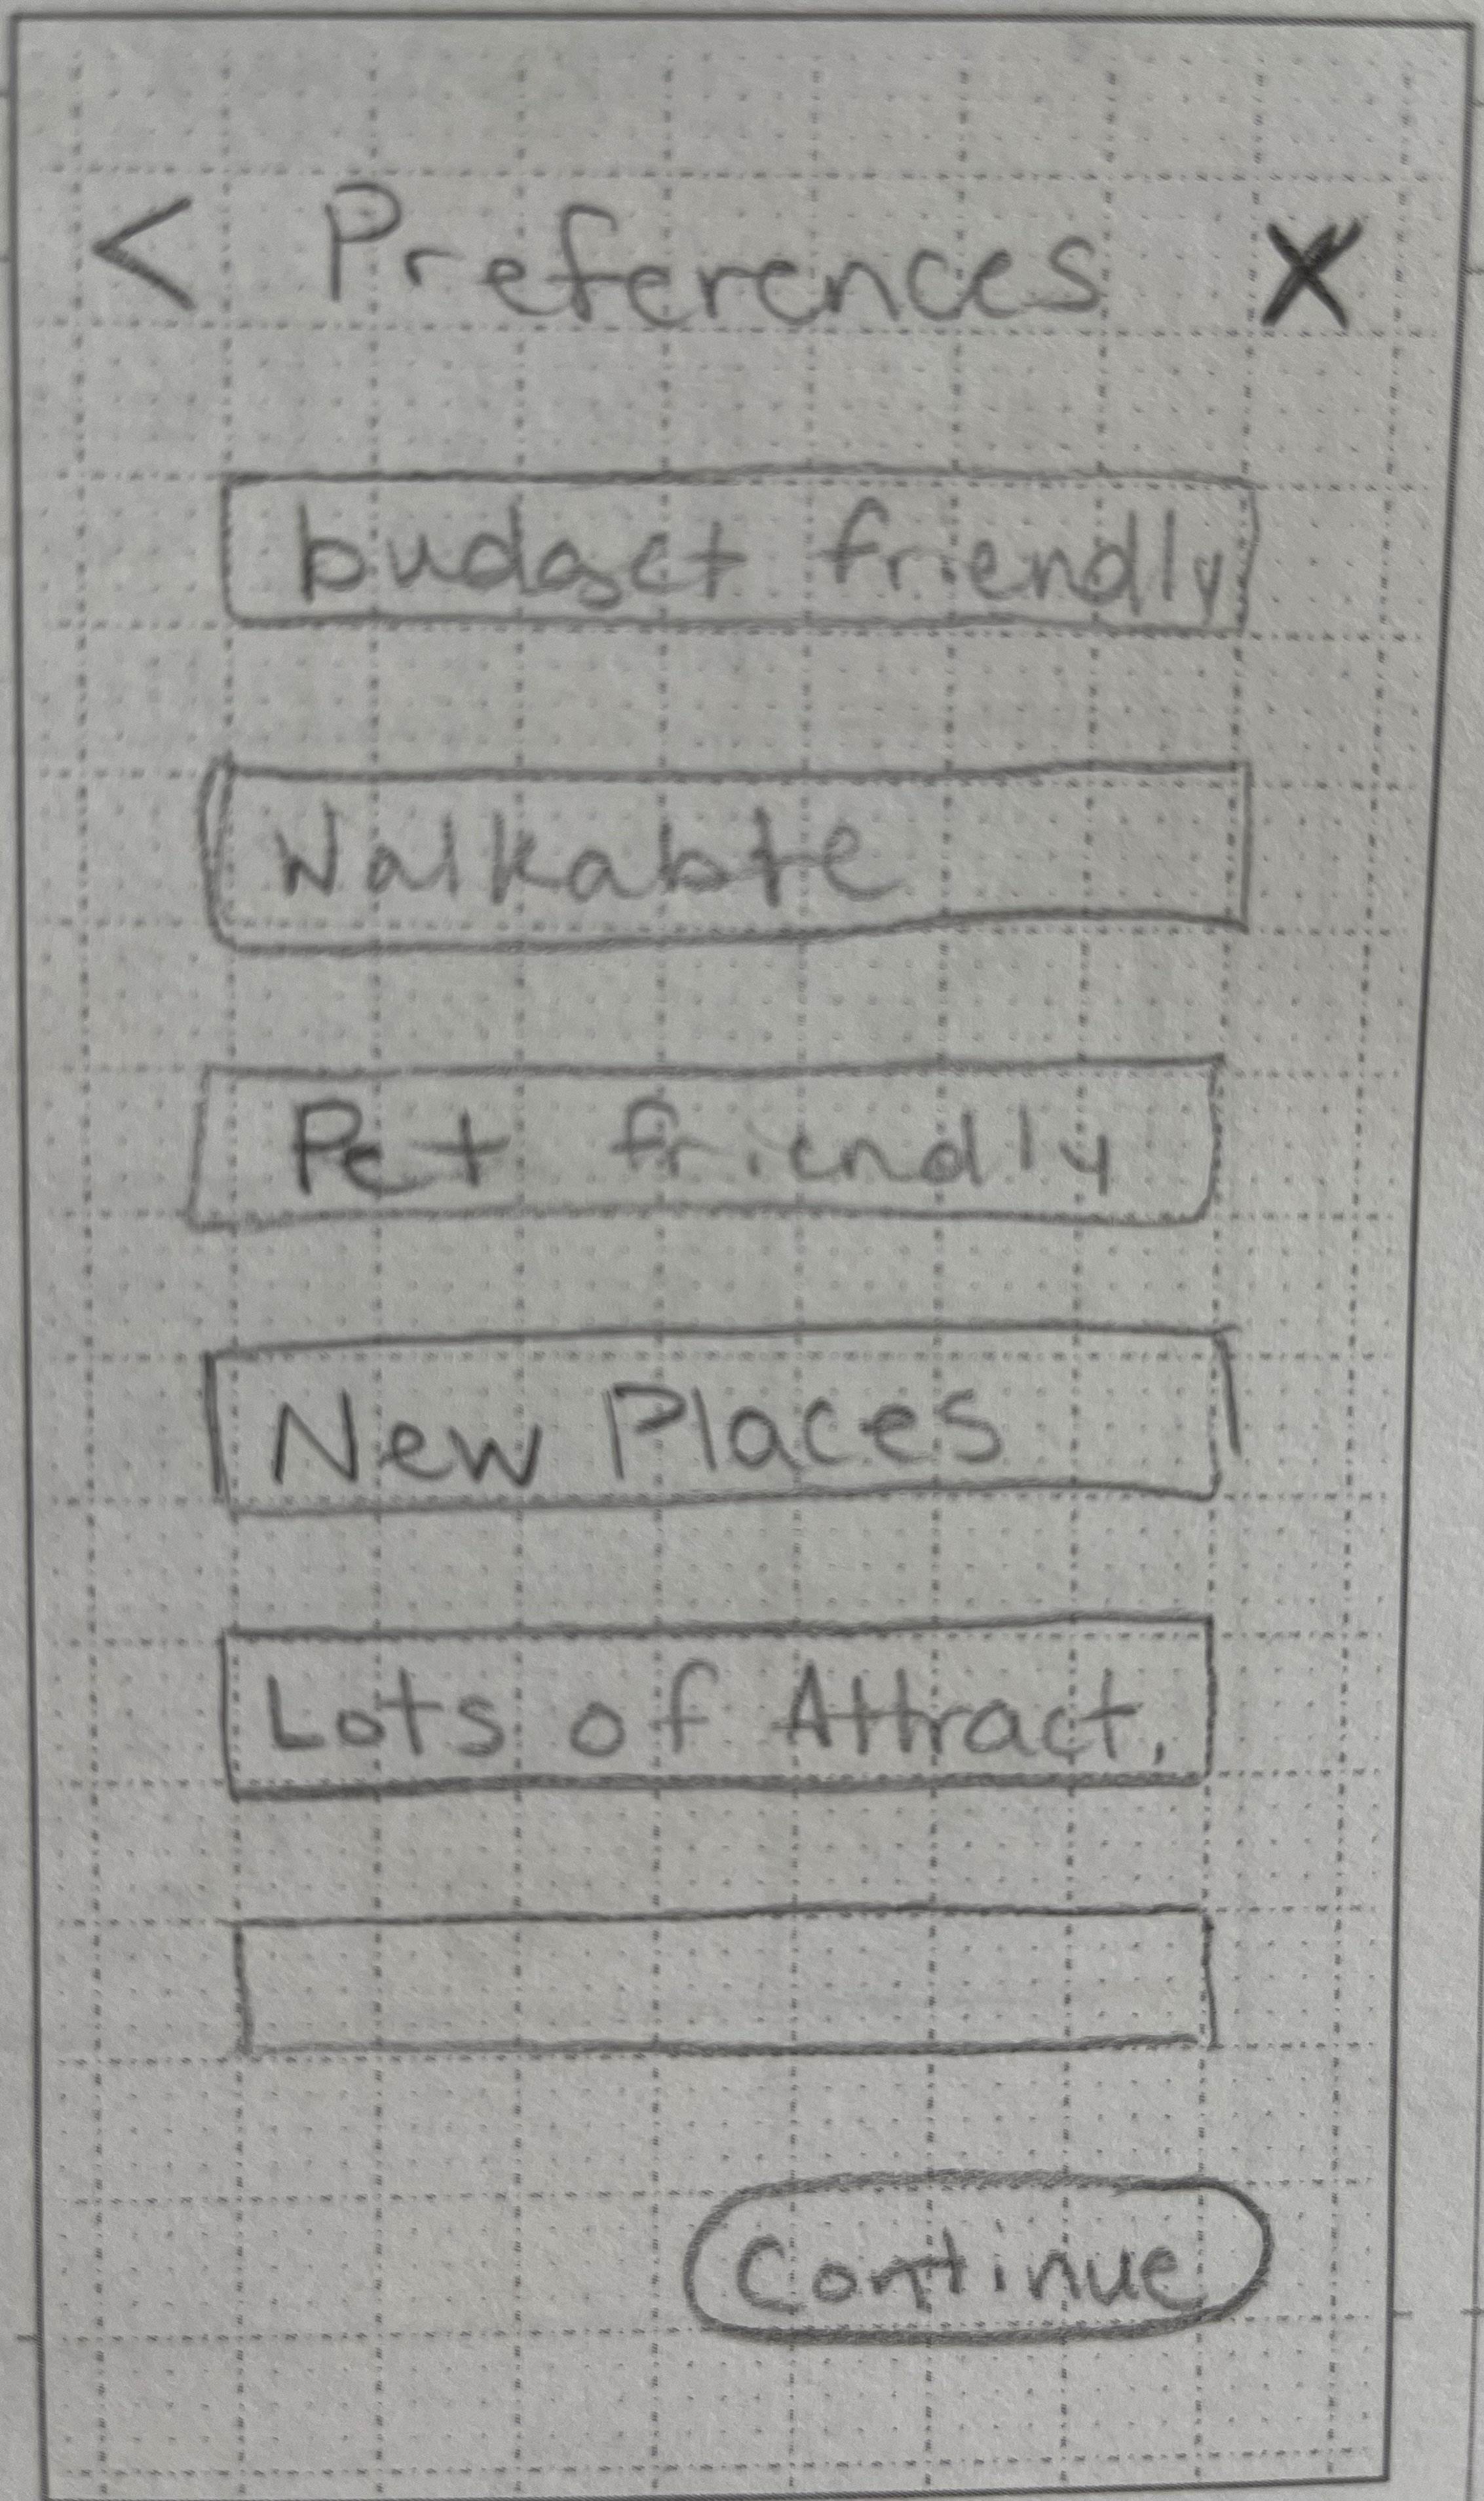 < Preferences X
budget friendly
Walkable
Pet friendly
New Places
Lots of Attract.
Continue